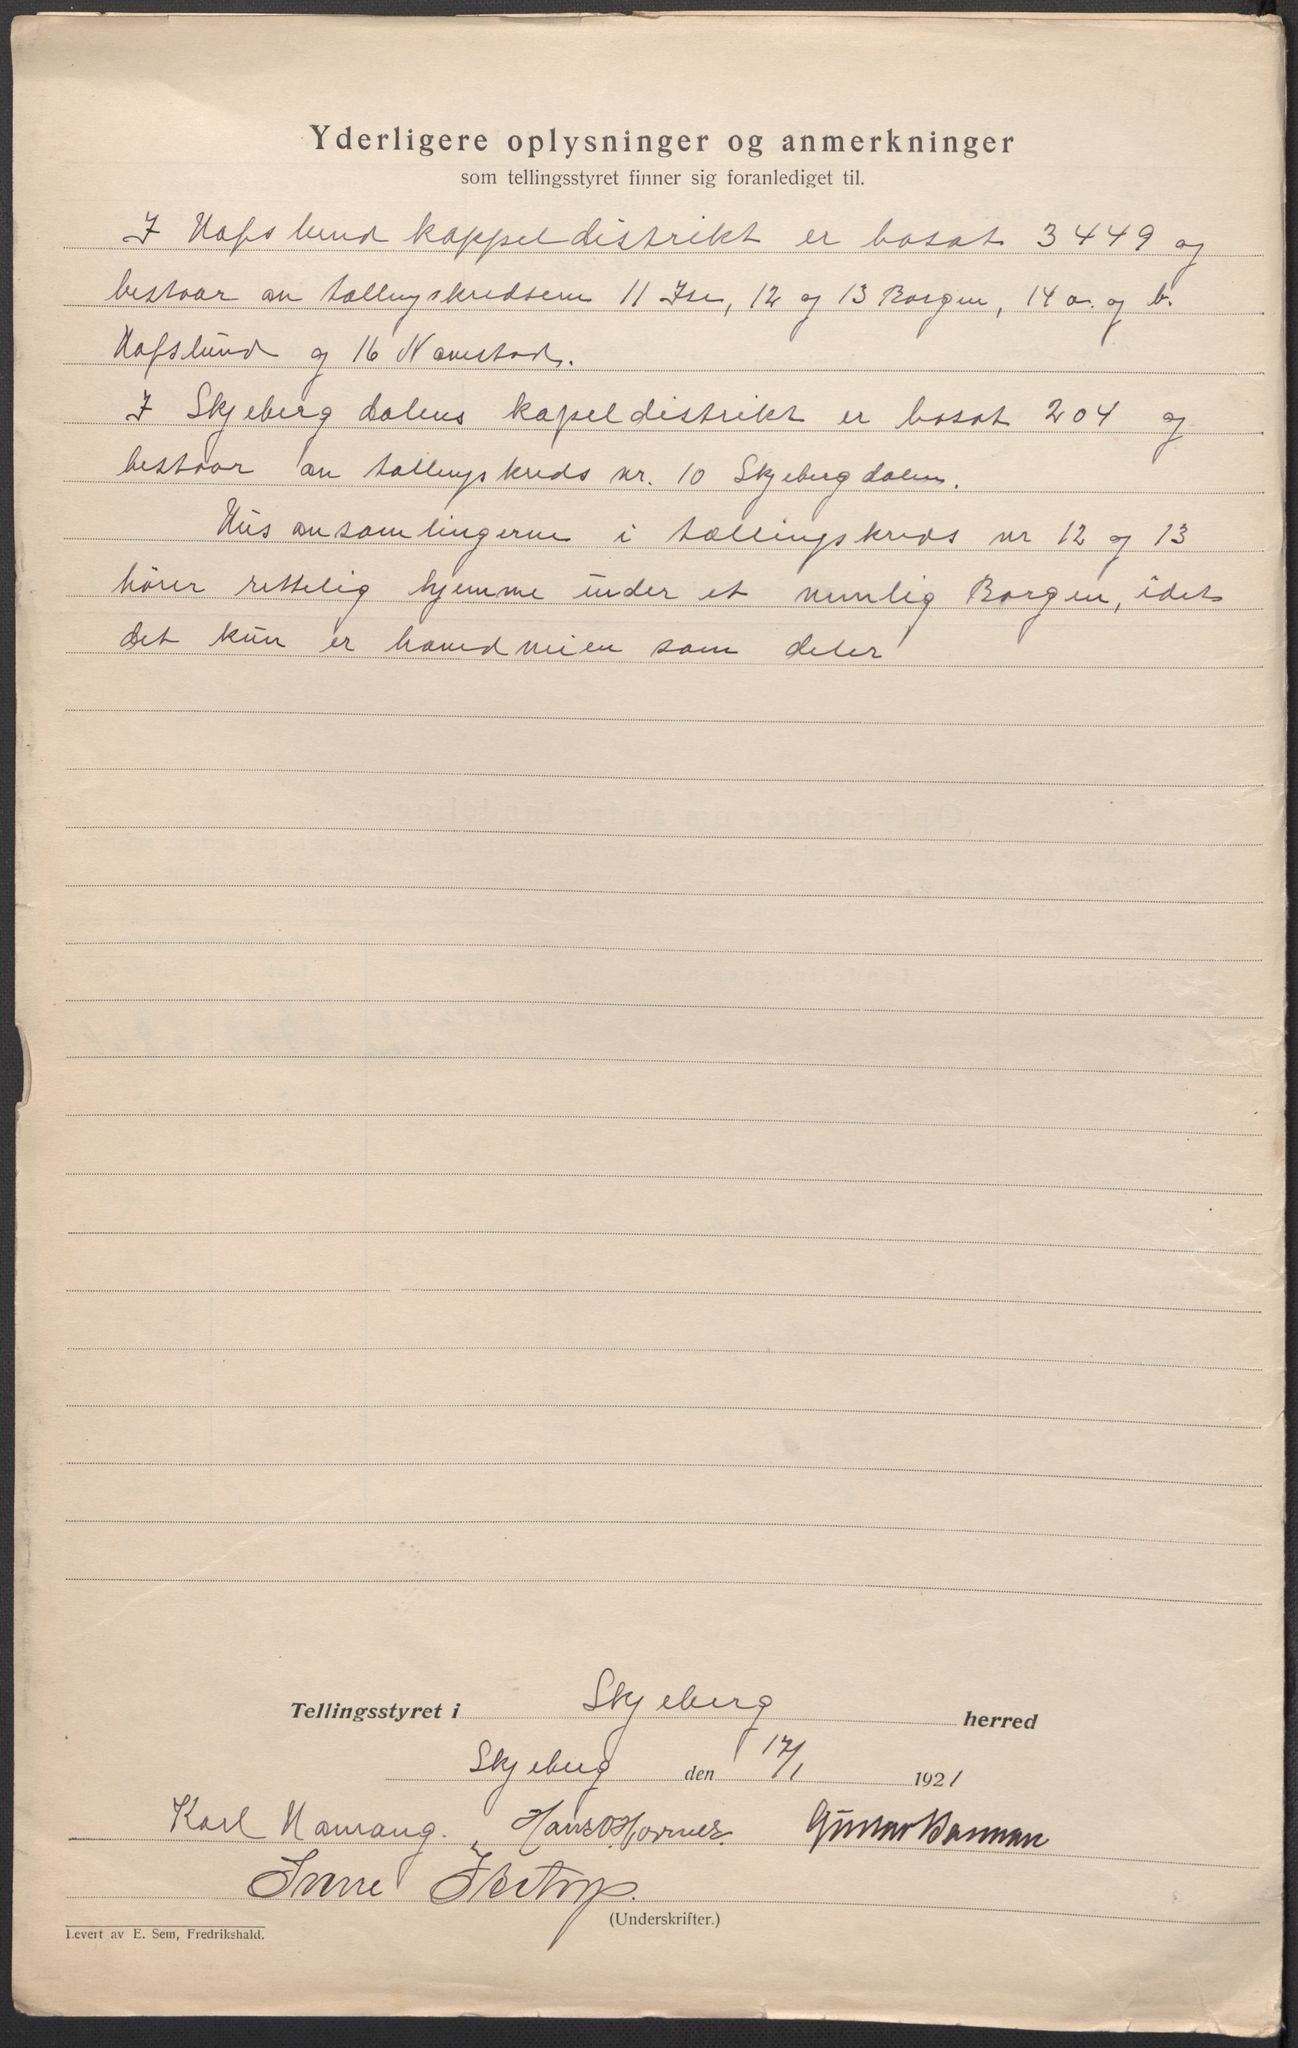 Yderligere oplysninger og anmerkninger
som tellingsstyret finner sig foranlediget til.
I Hafslund kappeldistrikt er bosat 3449 og
bestaar av tællingskredsene 11 Ise, 12 og 13 Borgen, 14 a. og b.
Hafslund og 16 Navestad.
I Skjebergdalens kapeldistrikt er bosat 204 og
bestaar av tællingskreds nr. 10 Skjebergdalen.
Husansamlingerne i tællingskreds nr 12 og 13
hører rettelig hjemme under et nemlig Borgen, idet
det kun er hovedveien som deler
Tellingsstyret i Skjeberg herred
Skjeberg den 17/1 1921
Karl
Gustav
(Underskrifter.)
Levert av E. Sem, Fredrikshald.